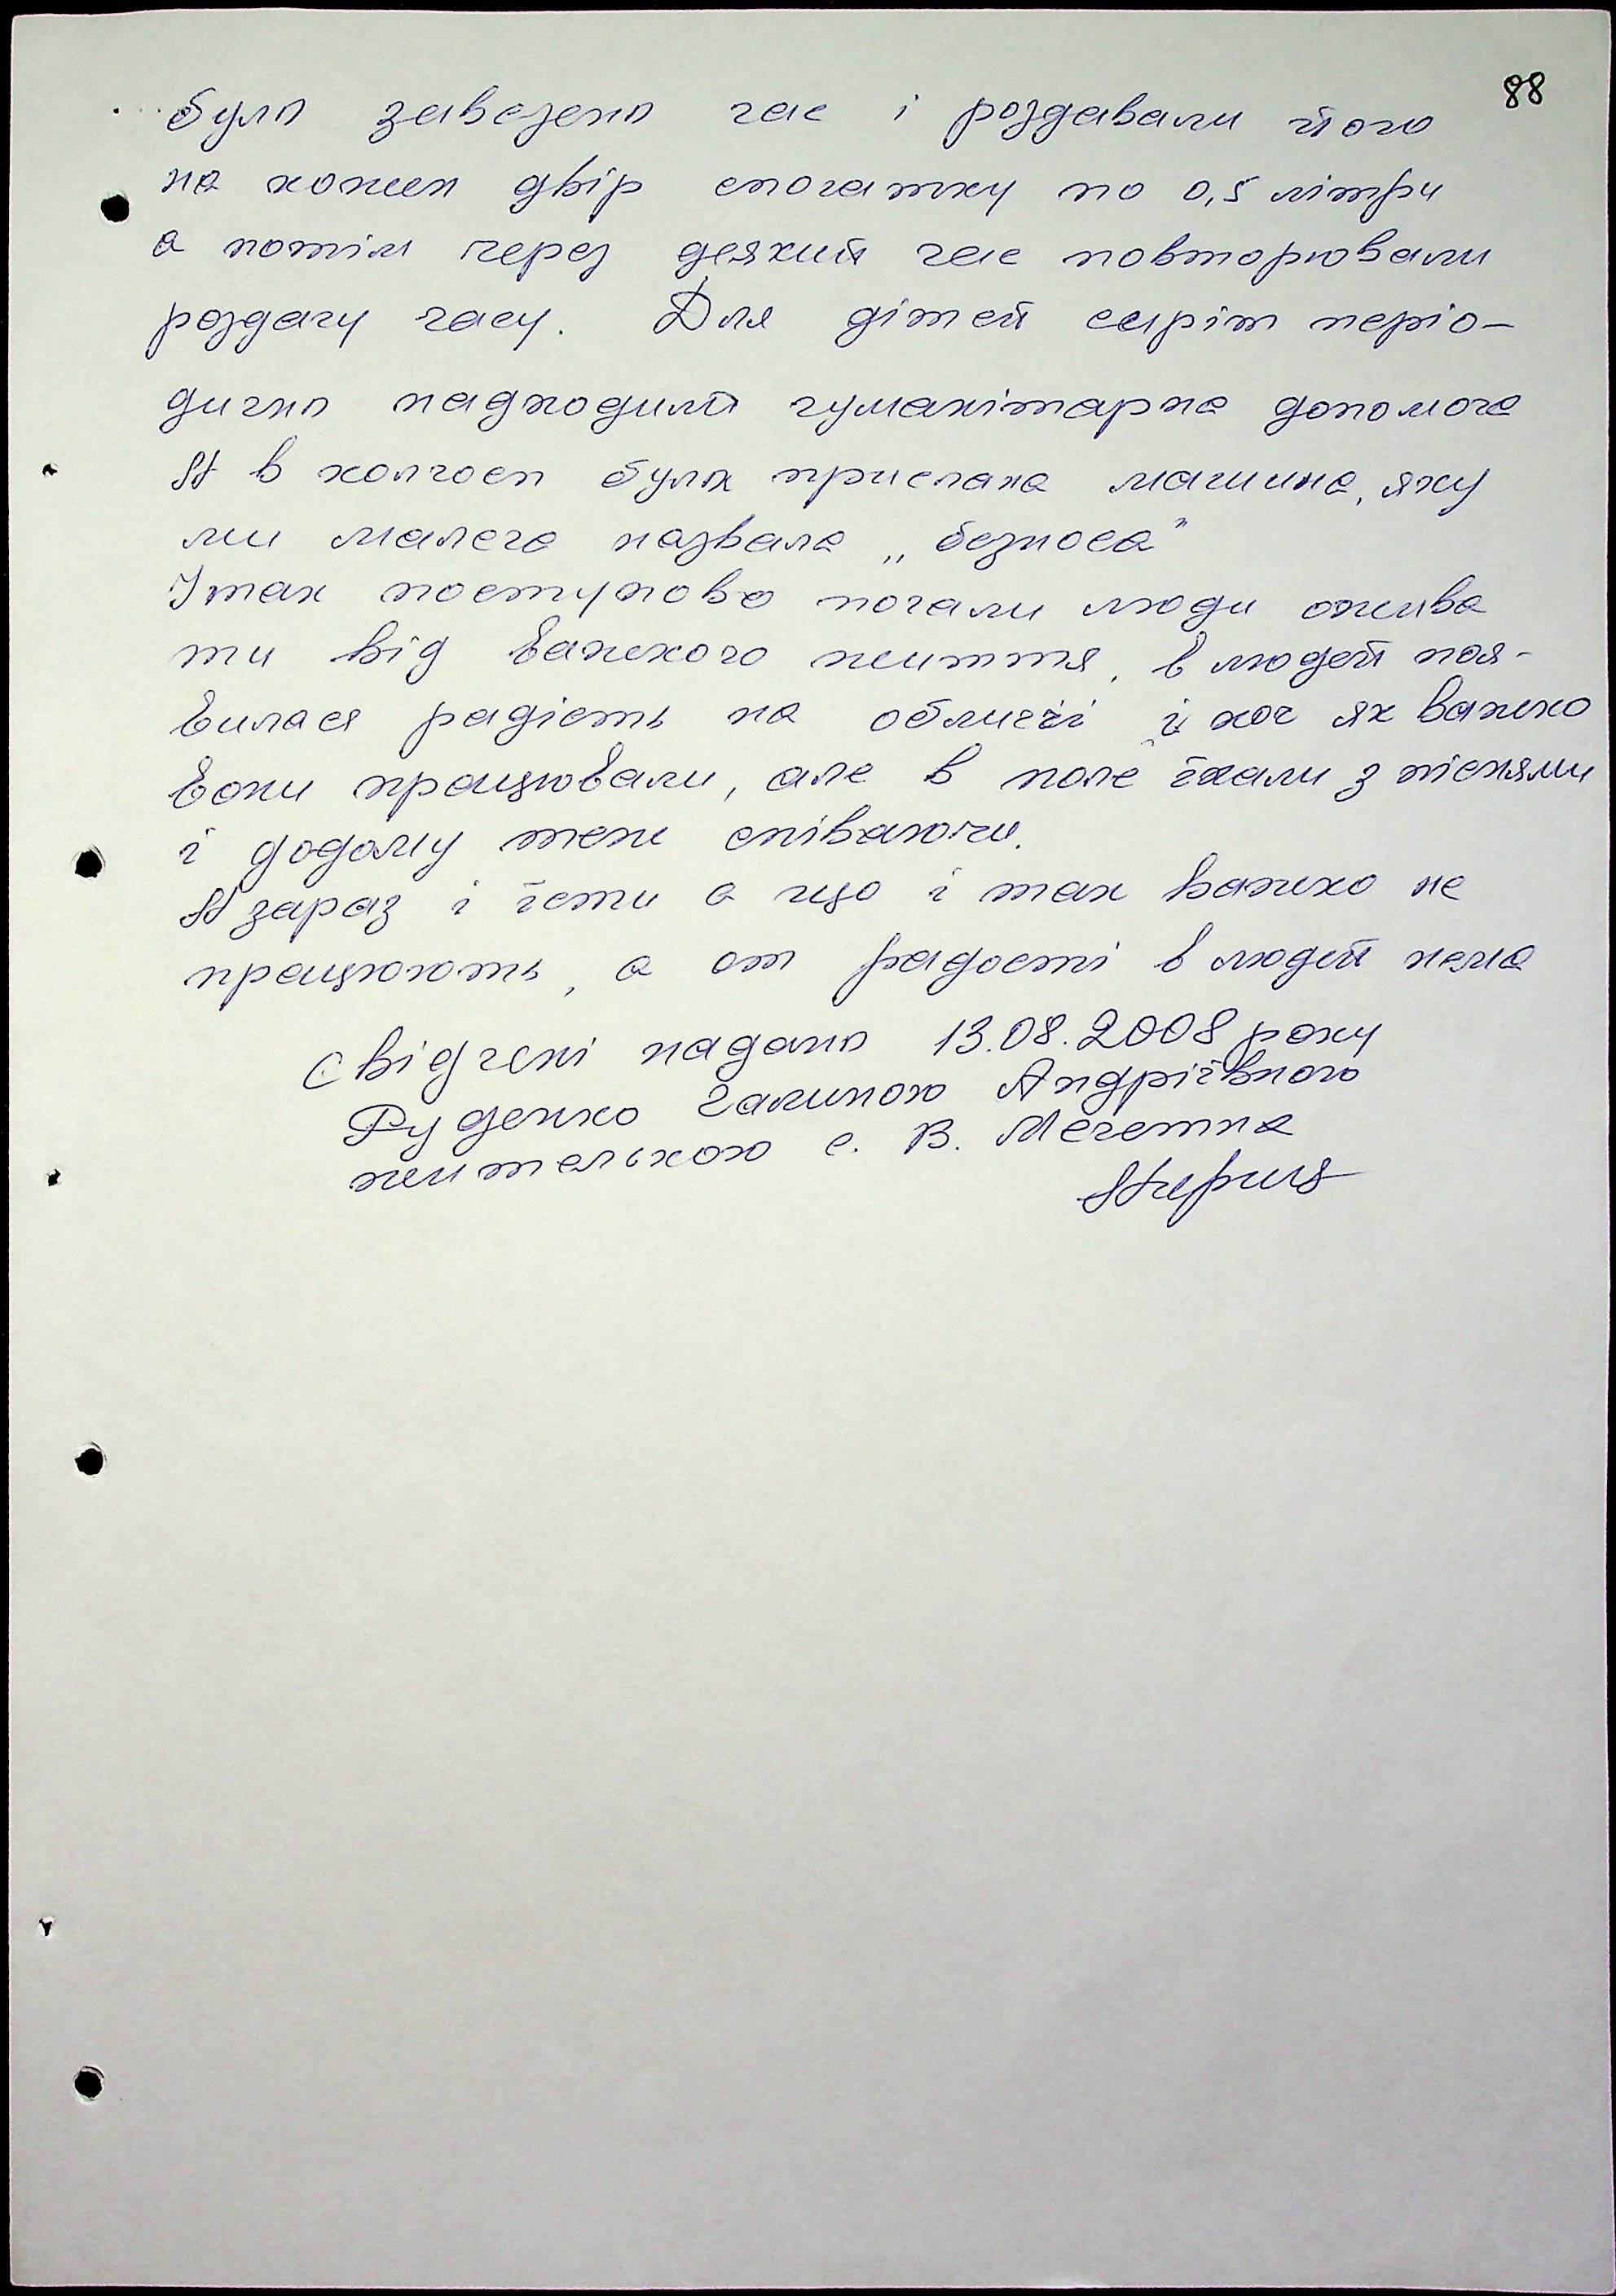 88
було завезено гас і роздавали його
на кожен двір спочатку по 0,5 літри
а потім через деякий час повторювали
роздачу гасу. Для дітей сиріт періо-
дично надходила гуманітарна допомога
А в колгосп була прислана машина, яку
ми малеча назвала „безноса"
І так поступово почали люди ожива
ти від важкого життя, в людей поя-
вилася радість на обличчі і хоч як важко
вони працювали, але в поле їхали з піснями
і додому теж співаючи.
А зараз і їсти є що і так важко не
працюють, а от радості в людей нема
Свідчені надано 13.08.2008 року
Руденко Галиною Андріївною
жителькою с. В. Мечетна